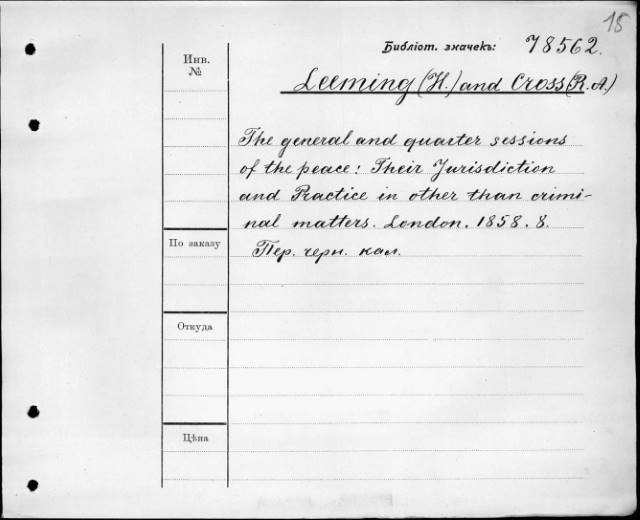 18
Библіот. значекъ: 78562.
Инв.
№
Leeming (H.) and Cross (R. A.)
The general and quarter sessions
of the peace: Their Jurisdiction
and Practice in other than crimi-
nal matters. London. 1858. 8.
По заказу
Пер. черн. кал.
Откуда
Цѣна